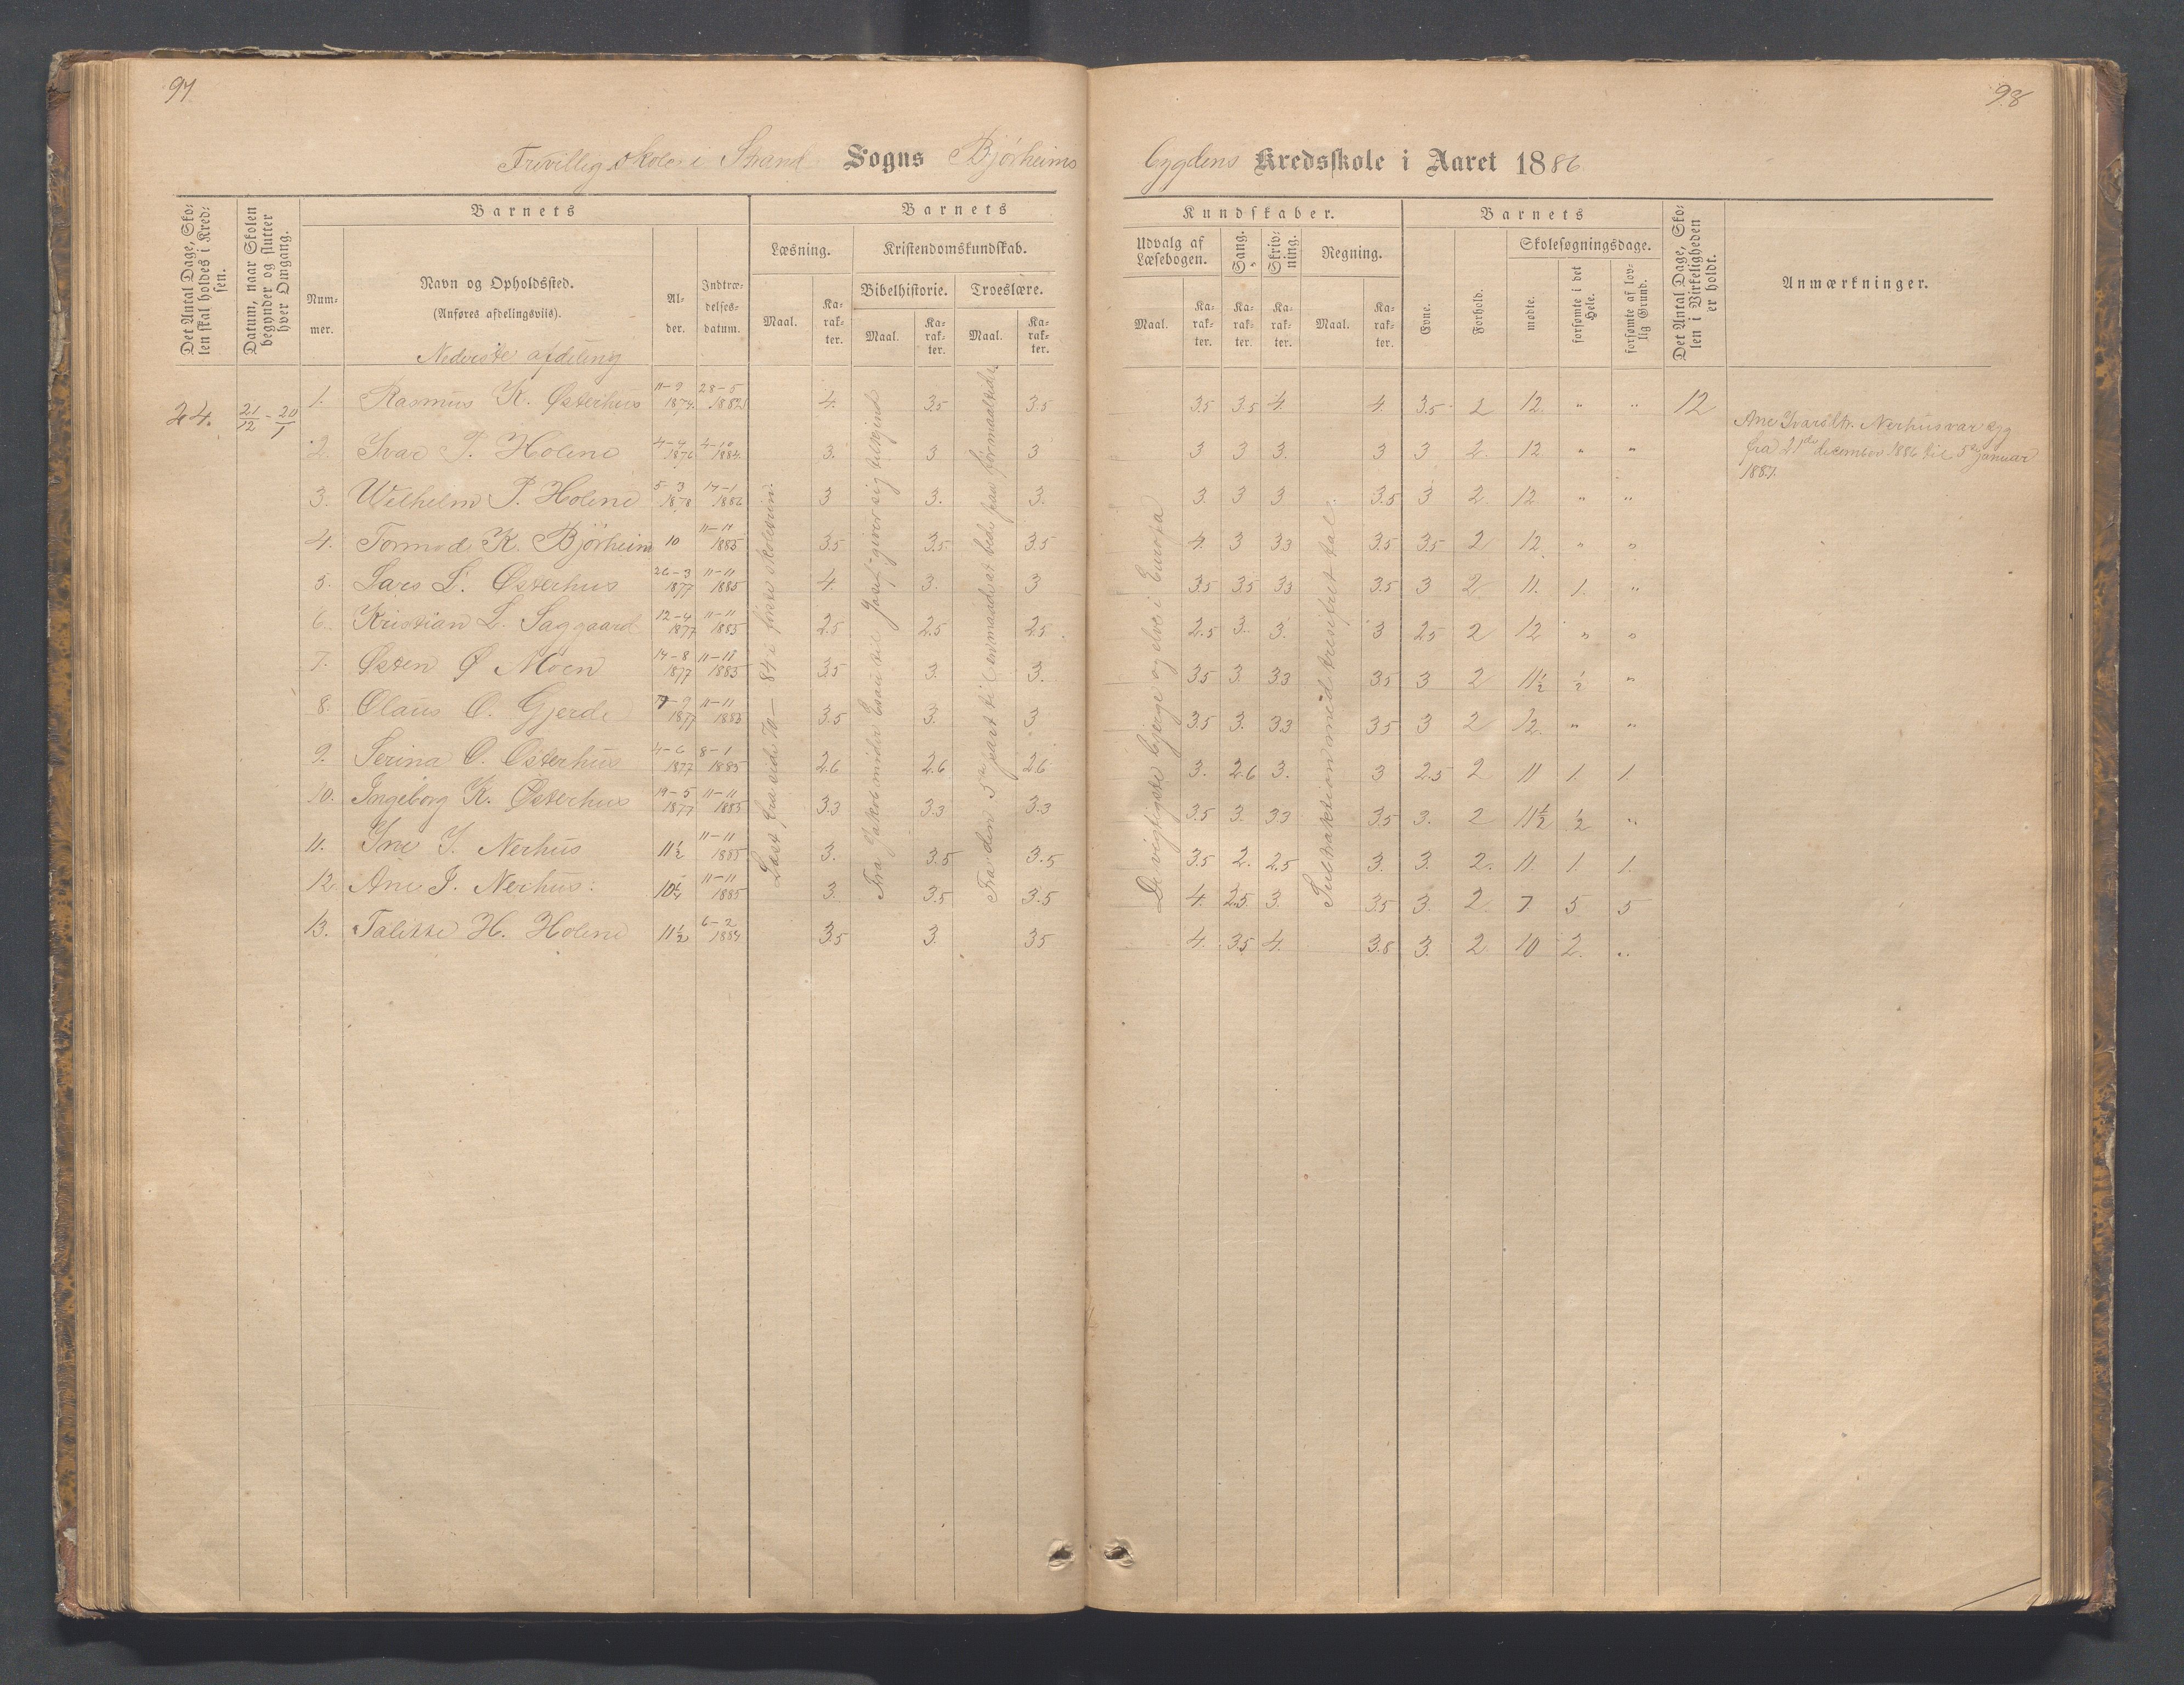 97
98
Frivillig skole i Strand Sogns Bjørheims
bygdens Kredsskole i Aaret 1886.
Det Antal Dage, Sko-
len skal holdes i Kred-
sen.
Datum, naar Skolen
begynder og slutter
hver Omgang.
Barnets
Num-
mer.
Navn og Opholdssted.
(Anføres afdelingsviis).
Nederste afdeling
Al-
der.
Indtræ-
delses-
datum.
Barnets
Læsning.
Maal.
Ka-
rak-
ter.
Kristendomskundskab.
Bibelhistorie.
Maal.
Ka-
rak-
ter.
Troeslære.
Maal.
Ka-
rak-
ter.
Kundskaber.
Udvalg af
Læsebogen.
Maal.
Ka-
rak-
ter.
Sang.
Ka-
rak-
ter.
Skriv-
ning.
Ka-
rak-
ter.
Regning.
Maal.
Ka-
rak-
ter.
Barnets
Evne.
Forhold.
Skolesøgningsdage.
mødte.
forsømte i det
Hele.
forsømte af lov-
lig Grund.
Det Antal Dage, Sko-
len i Virkeligheden
er holdt.
Anmærkninger.
24. 21/12 - 20/1
1. Rasmus K. Østerhus 11-9 1874. 28-5 1882 4. 3.5 3.5 3.5 3.5 4. 4. 3.5 2 12. " " 12
2. Ivar T. Holene 4-4 1876 4-10 1884. 3. 3 3 3 3 3. 3 3 2. 12 " "
3. Welhelm P. Holene 5-3 1878 17-1 1886 3 3. 3. 3. 3 3 3.5 3 2. 12 " "
4. Tormod K. Bjørheim 10 11-11 1885 3.5 3.5 3.5 4. 3 3.3 3.5 3.5 2 12. " "
5. Lars L. Østerhus 26-3 1877 11-11 1885 4. 3. 3 3.5 3.5 3.3 3.5 3 2 11. 1. "
6. Kristian L. Saggaard 12-4 1877 11-11 1885 2.5 2.5 2.5 2.5 3. 3. 3 2.5 2 12 " "
7. Østen Ø Moen 14-8 1877 11-11 1885 3.5 3. 3. 3.5 3. 3.3 3.5 3 2 11½ ½ "
8. Olaus O. Gjerde 7-9 1877 11-11 1885 3.5 3. 3 3.5 3. 3.3 3.5 3 2 12. " "
9. Serina O. Østerhus 4-6 1877 8-1 1885 2.6 2.6 2.6 3. 2.6 3. 3 2.5 2 11 1. 1.
10. Ingeborg K. Østerhus 19-5 1877 11-11 1885 3.3 3.3 3.3 3.5 3. 3.3 3.5 3. 2 11½ ½ "
11. Ine I. Nerhus 11½ 11-11 1885 3. 3.5 3.5 3.5 2. 2.5 3. 3. 2. 11. 1. 1.
12. Ane I. Nerhus. 10¼ 11-11 1885 3. 3.5 3.5 4. 2.5 3. 3.5 3. 2. 7 5 5
13. Talette H. Holene 11½ 6-2 1884 3.5 3. 3.5 4. 3.5 4. 3.8 3. 2 10 2. "
Læst fra side 70 - 84 i første skoletrin.
Fra Jakob under Esau til "Josef giver sig tilkjend
Fra den 5te part til "en maade at bede paa
De vigtigste bjerge og elve i Europa
Subtraktion med tresifret tal.
Ane Ivarsdtr. Nerhus var syg
fra 21de december 1886 til 5te januar
1887.